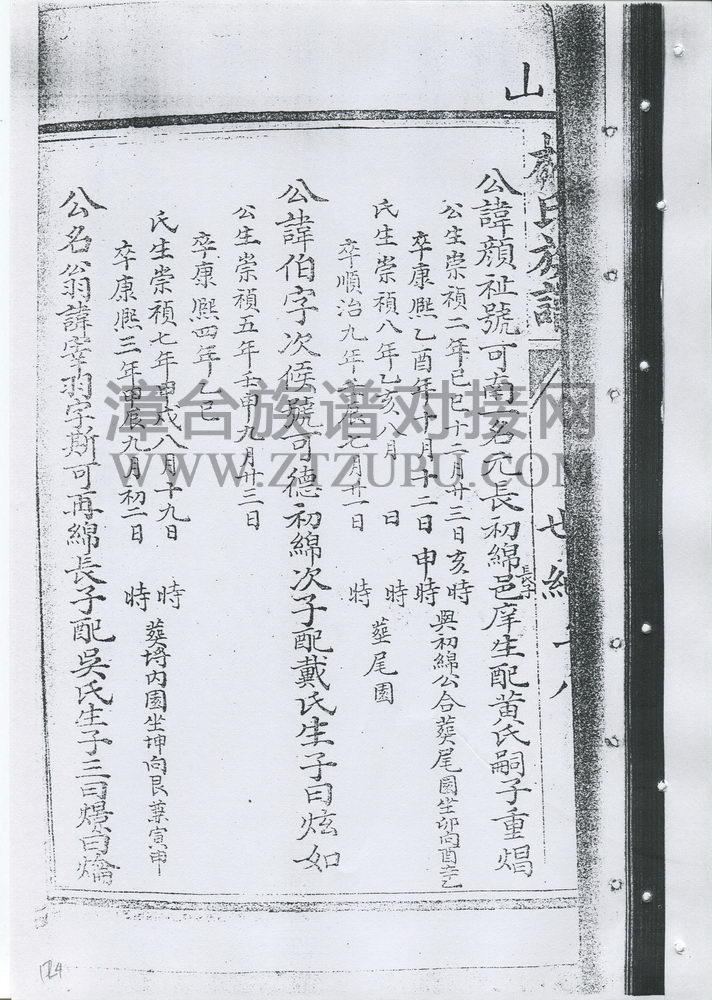 山
氏族譜
公諱顏祉號可南名元長初綿長子邑庠生配黃氏嗣子重焻
公生崇禎二年己巳十二月廿三日亥時
卒康熙乙酉年十月十二日申時
與初綿公合葬尾園坐卯向酉辛乙
氏生崇禎八年乙亥八月 日 時
卒順治九年壬辰七月廿一日 時
葬尾園
公諱伯字次候號可德初綿次子配戴氏生子曰炫如
公生崇禎五年壬申九月廿三日
卒康熙四年乙巳
氏生崇禎七年甲戌八月十九日 時
卒康熙三年甲辰九月初二日 時
葬塆內園坐坤向艮兼寅申
公名翁諱宰羽字斯可再綿長子配吳氏生子三曰熼曰焴
漳台族谱对接网
WWW.ZTZUPU.COM
124